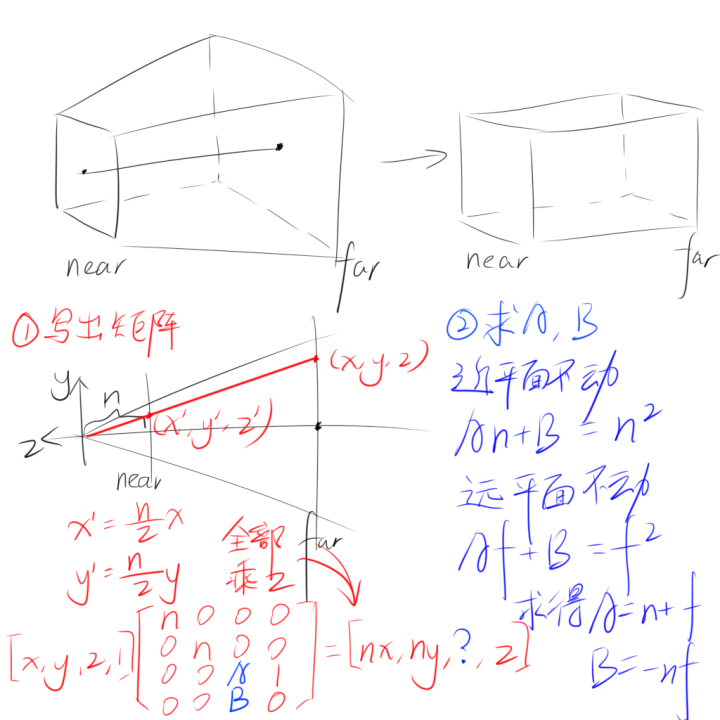 near
far
near
far
①写出矩阵
y
n
z
(x,y,z)
(x',y',z')
near
far
x'=n/z x
y'=n/z y
全部
乘z
[x,y,z,1] [n 0 0 0
0 n 0 0
0 0 A 1
0 0 B 0] =[nx,ny,?,z]
②求A,B
近平面不动
An+B=n²
远平面不动
Af+B=f²
求得A=n+f
B=-nf